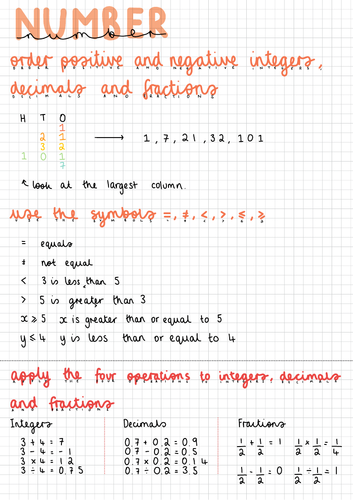 NUMBER
order positive and negative integers,
decimals and fractions
H T O
1
2 1 → 1, 7, 21, 32, 101
3 2
1 0 1
7
↖ look at the largest column.
use the symbols =, ≠, <, >, ≤, ≥
= equals
≠ not equal
< 3 is less than 5
> 5 is greater than 3
x ≥ 5 x is greater than or equal to 5
y ≤ 4 y is less than or equal to 4
apply the four operations to integers, decimals
and fractions
Integers
3 + 4 = 7
3 - 4 = -1
3 × 4 = 12
3 ÷ 4 = 0.75
Decimals
0.7 + 0.2 = 0.9
0.7 - 0.2 = 0.5
0.7 × 0.2 = 0.14
0.7 ÷ 0.2 = 3.5
Fractions
1/2 + 1/2 = 1 1/2 × 1/2 = 1/4
1/2 - 1/2 = 0 1/2 ÷ 1/2 = 1